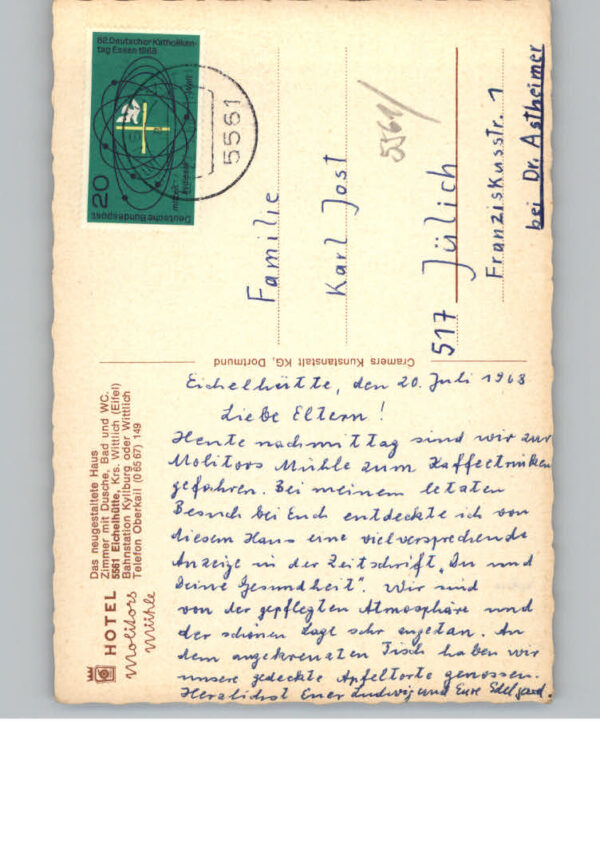 82. Deutscher Katholiken-
tag Essen 1968
20
Deutsche Bundespost
5561
5561/
Familie
Karl Jost
517 Jülich
Franziskusstr. 1
bei Dr. Astheimer
Cramers Kunstanstalt KG, Dortmund
HOTEL
Molitors
Mühle
Das neugestaltete Haus
Zimmer mit Dusche, Bad und WC.
5561 Eichelhütte, Krs. Wittlich (Eifel)
Bahnstation Kyllburg oder Wittlich
Telefon Oberkail (0 65 67) 149
Eichelhütte, den 20. Juli 1968
Liebe Eltern!
Heute nachmittag sind wir zur
Molitors Mühle zum Kaffeetrinken
gefahren. Bei meinem letzten
Besuch bei Euch entdeckte ich von
diesem Haus eine vielversprechende
Anzeige in der Zeitschrift „Du und
Deine Gesundheit“. Wir sind
von der gepflegten Atmosphäre und
der schönen Lage sehr angetan. An
dem angekreuzten Tisch haben wir
unsere gedeckte Apfeltorte genossen.
Herzlichst Euer Ludwig und Eure Edelgard.